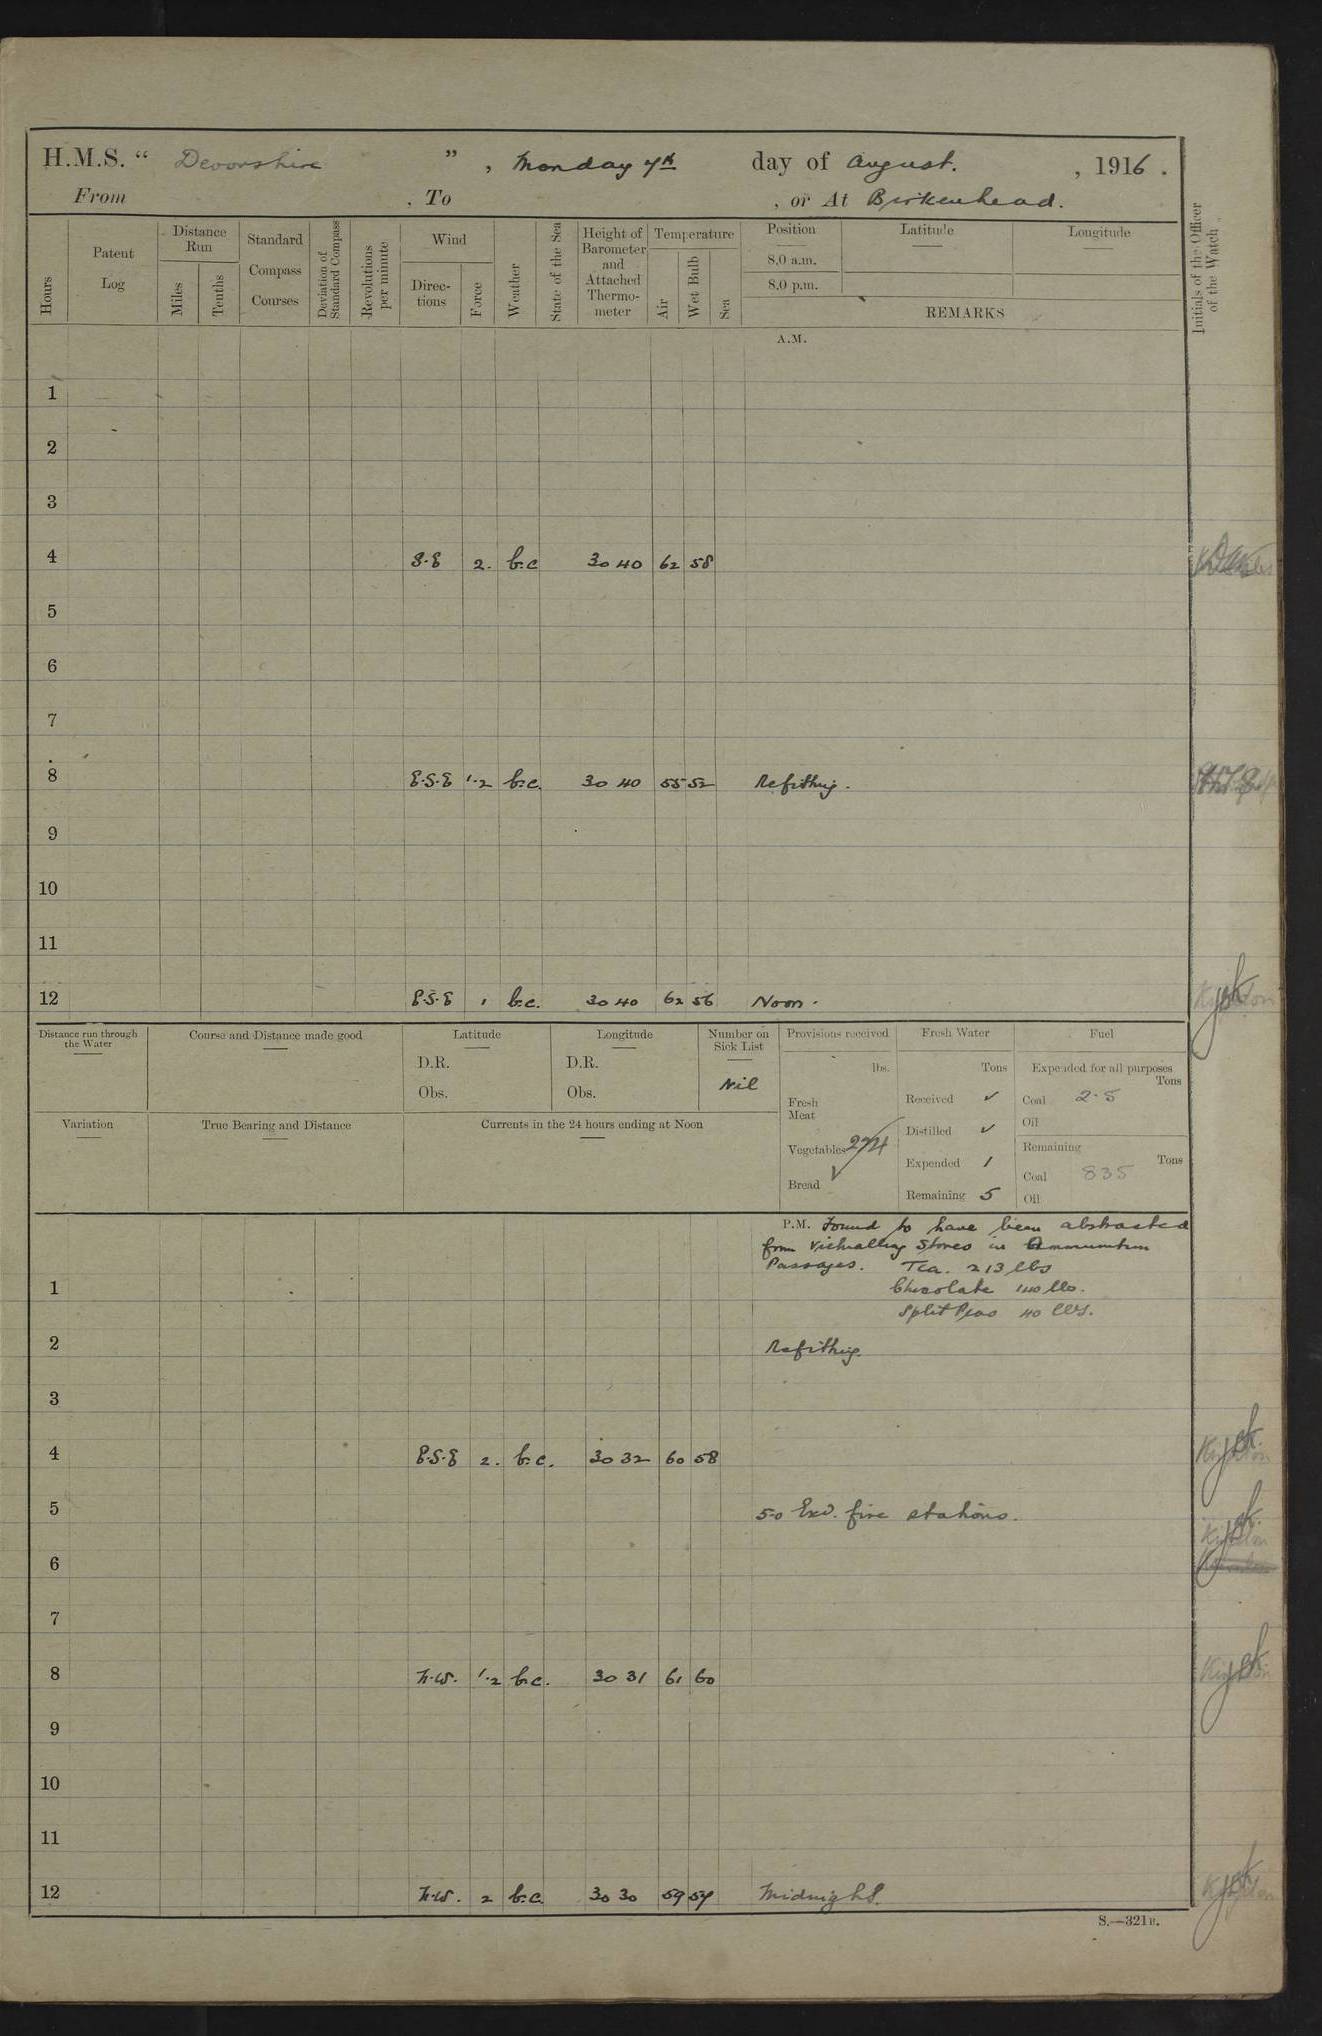 H.M.S. " Devonshire ", Monday 7th day of August. , 1916.
From , To , or At Birkenhead.
Hours
Patent Log
Distance Run
Miles
Tenths
Standard Compass Courses
Deviation of Standard Compass
Revolutions per minute
Wind
Directions
Force
Weather
State of the Sea
Height of Barometer and Attached Thermometer
Temperature
Air
Wet Bulb
Sea
Position
8.0 a.m.
8.0 p.m.
Latitude
Longitude
REMARKS
Initials of the Officer of the Watch
A.M.
1
2
3
4 S.E 2. b.c 30 40 62 58
5
6
7
8 E.S.E 1.2 b.c. 30 40 55 52 Refitting.
9
10
11
12 E.S.E 1 b.c. 30 40 62 56 Noon.
Distance run through the Water
Course and Distance made good
Latitude
D.R.
Obs.
Longitude
D.R.
Obs.
Number on Sick List
Nil
Provisions received
lbs.
Fresh Meat
Vegetables 274
Bread ✓
Fresh Water
Tons
Received ✓
Distilled ✓
Expended 1
Remaining 5
Fuel
Expended for all purposes
Tons
Coal 2.5
Oil
Remaining
Tons
Coal 835
Oil
Variation
True Bearing and Distance
Currents in the 24 hours ending at Noon
P.M. Found to have been abstracted
from Victualling Stores in Ammunition
Passages. Tea. 213 lbs
Chocolate 140 lbs.
Split Peas 40 lbs.
1
2 Refitting.
3
4 E.S.E 2. b.c. 30 32 60 58
5 5-0 Exd. fire stations.
6
7
8 N.W. 1.2 b.c. 30 31 61 60
9
10
11
12 N.W. 2 b.c. 30 30 59 57 Midnight.
S.—321B.